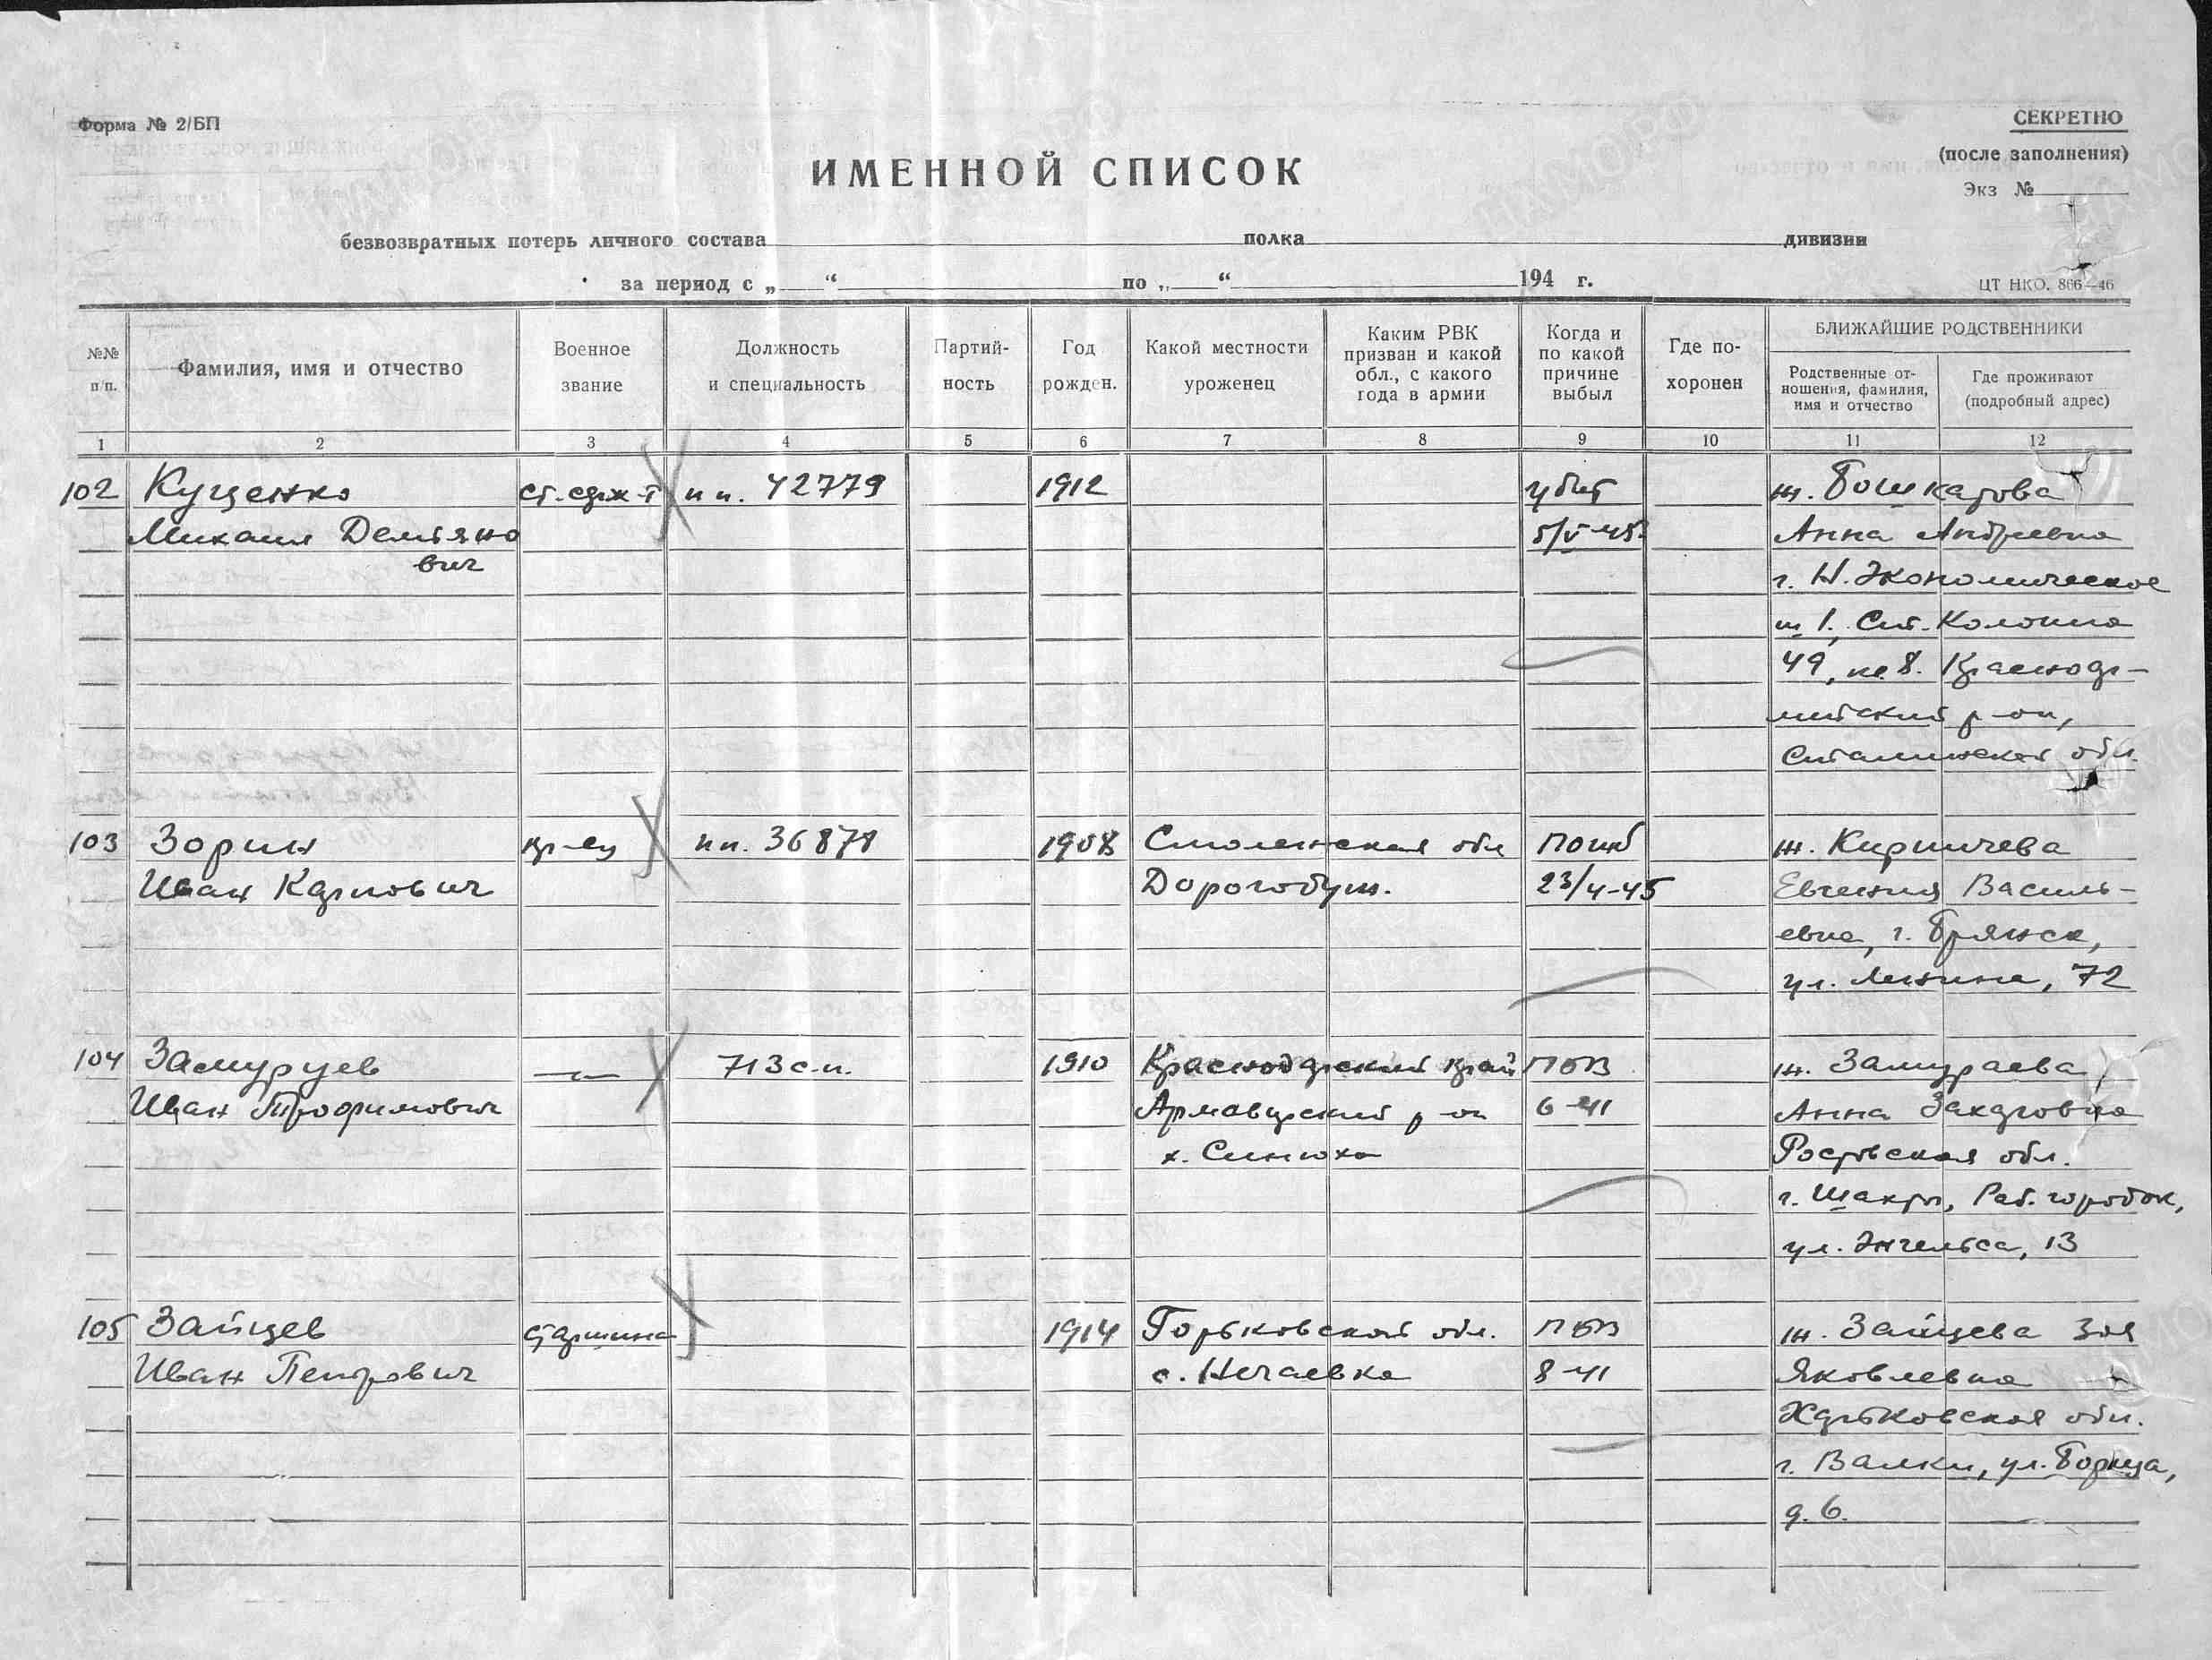 Форма № 2/БП
СЕКРЕТНО
(после заполнения)
Экз №
ИМЕННОЙ СПИСОК
безвозвратных потерь личного состава полка дивизии
за период с „ “ по „ “ 194 г.
ЦТ НКО. 866—46
№№ п/п.
Фамилия, имя и отчество
Военное звание
Должность и специальность
Партий-
ность
Год рожден.
Какой местности уроженец
Каким РВК
призван и какой
обл., с какого
года в армии
Когда и
по какой
причине
выбыл
Где по-
хоронен
БЛИЖАЙШИЕ РОДСТВЕННИКИ
Родственные от-
ношения, фамилия,
имя и отчество
Где проживают
(подробный адрес)
1 2 3 4 5 6 7 8 9 10 11 12
102 Кущенко ст. серж-т пп. 42779 1912 убит ж. Бошкатова
Михаил Демьяно 5/V-45. Анна Андреевна
вич
г. Н. Экономическое
ш 1, Ст. Колонна
49, кв 8. Красноар-
мейский р-он,
Сталинской обл.
103 Зорин кр-ец пп. 36878 1908 Смоленская обл погиб ж. Кирпичева
Иван Карпович Дорогобуж. 23/4-45 Евгения Василь-
евна, г. Брянск,
ул. Ленина, 72
104 Замуруев —„— 713 с.п. 1910 Краснодарский край ПБВ ж. Замураева
Иван Трофимович Армавирский р-он 6-41 Анна Захаровна
х. Синюха Ростовская обл.
г. Шахты, Раб. городок,
ул. Энгельса, 13
105 Зайцев старшина 1914 Горьковской обл. ПБВ ж. Зайцева Зоя
Иван Петрович с. Нечаевка 8-41 Яковлевна
Харьковская обл.
г. Валки, ул. Борца,
д. 6.